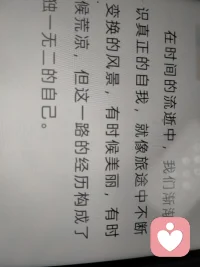 在时间的流逝中，我们渐
识真正的自我，就像旅途中不断
变换的风景，有时候美丽，有时
候荒凉，但这一路的经历构成了
独一无二的自己。